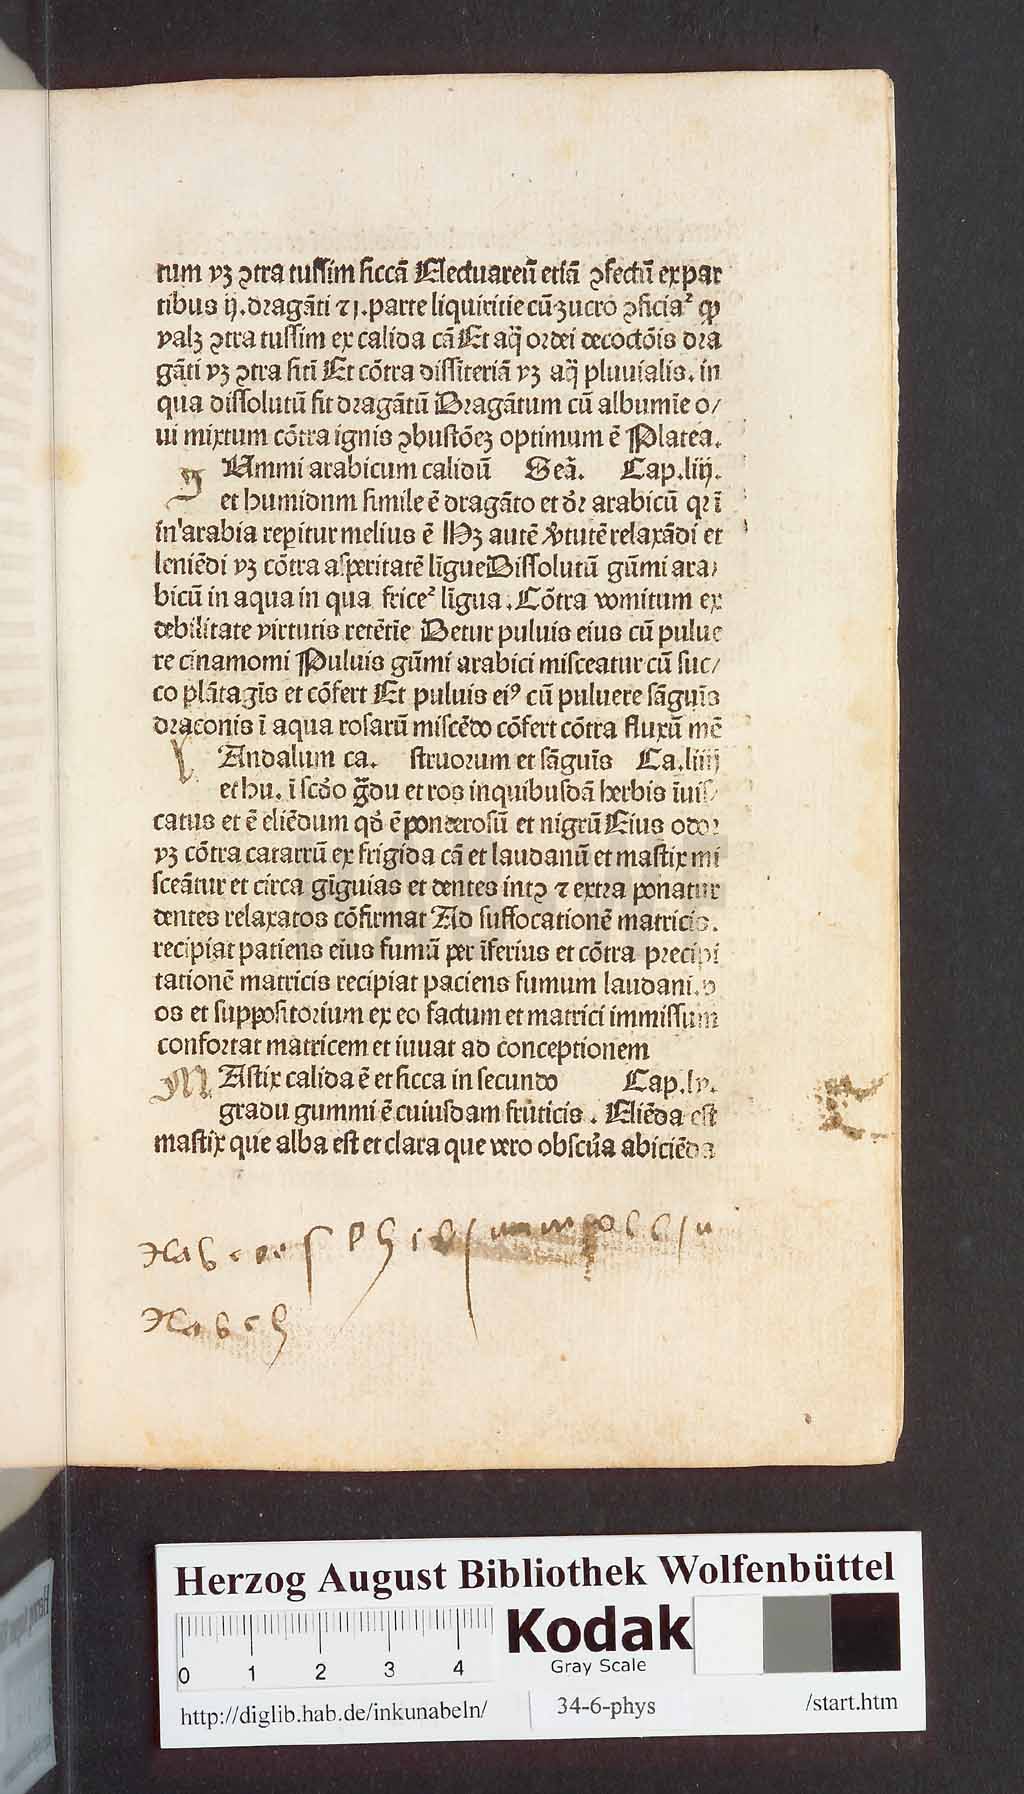 tum vꝫ ꝯtra tussim siccā Electuareū etiā ꝯfectū ex par
tibus ij. dragāti ⁊ j. parte liquiritie cū zucro ꝯficiaᷣ qꝫ
valꝫ ꝯtra tussim ex calida cā Et aq̄ ordei decoctōis dra
gāti vꝫ ꝯtra sitī Et cōtra dissiteriā vꝫ aq̄ pluuialis. in
qua dissolutū sit dragātū Dragātum cū albumīe o/
ui mixtum cōtra ignis ꝯbustōeꝫ optimum ē Platea.
g Ummi arabicum calidū Seā. Cap.liij.
et humidum simile ē dragāto et dr̄ arabicū qꝛ ī
in arabia reꝑitur melius ē Hꝫ autē v̓tutē relaxādi et
leniēdi vꝫ cōtra asperitatē līgue Dissolutū gūmi ara/
bicū in aqua in qua friceᷣ līgua. Cōtra vomitum ex
debilitate virtutis retētīe Detur puluis eius cū pulue
re cinamomi Puluis gūmi arabici misceatur cū suc/
co plātagīs et cōfert Et puluis eiꝰ cū puluere sāguīs
draconis ī aqua rosarū miscēdo cōfert cōtra fluxū mē
l Andalum ca. struorum et sāguīs Ca.liiij
et hu. ī scd̓o g̃du et ros inquibusdā herbis īuis/
catus et ē eliēdum qd̓ ē ponderosū et nigrū Eius odor
vꝫ cōtra catarrū ex frigida cā et laudanū et mastix mi
sceātur et circa gīguias et dentes intꝯ ⁊ extra ponatur
dentes relaxatos cōfirmat Ad suffocationē matricis.
recipiat patiens eius fumū per īferius et cōtra precipi
tationē matricis recipiat paciens fumum laudani.
os et suppositorium ex eo factum et matrici immissum
confortat matricem et iuuat ad conceptionem
M Astix calida ē et sicca in secundo Cap.lv.
gradu gummi ē cuiusdam fruticis. Eliēda est
mastix que alba est et clara que vero obscūa abiciēda
Herzog August Bibliothek Wolfenbüttel
0 1 2 3 4
Kodak
Gray Scale
http://diglib.hab.de/inkunabeln/ 34-6-phys /start.htm